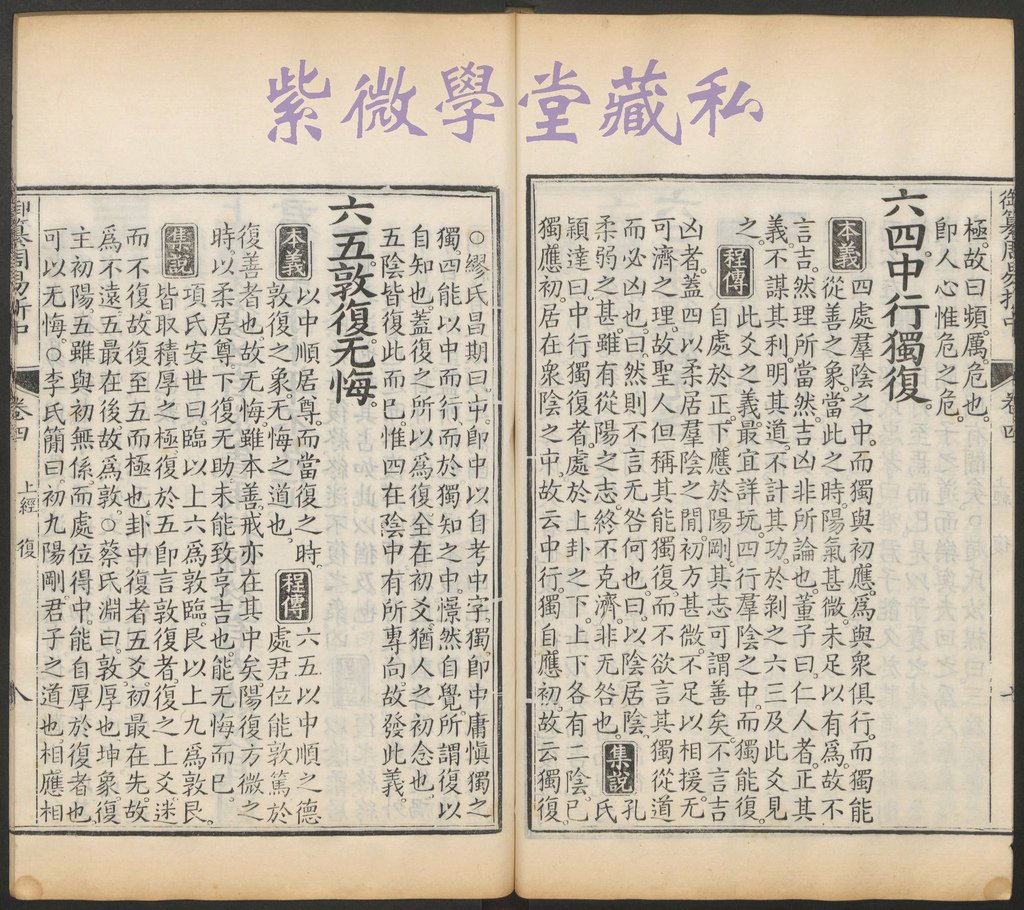 紫微學堂藏私
御纂周易折中
卷四
極。故曰頻。厲危也。
卽人心惟危之危。
六四中行獨復。
本義 四處羣陰之中。而獨與初應。爲與衆俱行。而獨能
從善之象。當此之時。陽氣甚微。未足以有爲。故不
言吉。然理所當然。吉凶非所論也。董子曰。仁人者。正其
義。不謀其利。明其道。不計其功。於剝之六三及此爻見
之。程傳 此爻之義。最宜詳玩。四行羣陰之中。而獨能復。
自處於正。下應於陽剛。其志可謂善矣。不言吉
凶者。蓋四以柔居羣陰之閒。初方甚微。不足以相援。无
可濟之理。故聖人但稱其能獨復。而不欲言其獨從道
而必凶也。曰然則不言无咎何也。曰以陰居陰。集說 孔
柔弱之甚。雖有從陽之志。終不克濟。非无咎也。氏
穎達曰。中行獨復者。處於上卦之下。上下各有二陰。已
獨應初。居在衆陰之中。故云中行。獨自應初。故云獨復。
○繆氏昌期曰。中。卽中以自考中字。獨。卽中庸愼獨之
獨。四能以中而行。而於獨知之中。憬然自覺。所謂復以
自知也。蓋復之所以爲復。全在初爻。猶人之初念也。
五陰皆復此而巳。惟四在陰中有所專向。故發此義。
六五敦復无悔。
本義 以中順居尊。而當復之時。程傳 六五以中順之德
敦復之象。无悔之道也。處君位能敦篤於
復善者也。故无悔。雖本善。戒亦在其中矣。陽復方微之
時。以柔居尊。下復无助。未能致亨吉也。能无悔而巳。
集說 項氏安世曰。臨以上六爲敦臨。艮以上九爲敦艮。
皆取積厚之極。復於五卽言敦復者。復之上爻迷
而不復。故復至五而極也。卦中復者五爻。初最在先。故
爲不遠。五最在後。故爲敦。○蔡氏淵曰。敦厚也。坤象。復
主初陽。五雖與初無係。而處位得中。能自厚於復者也。
可以无悔。○李氏簡曰。初九陽剛君子之道也。相應相
御纂周易折中
卷四
上經
復
八